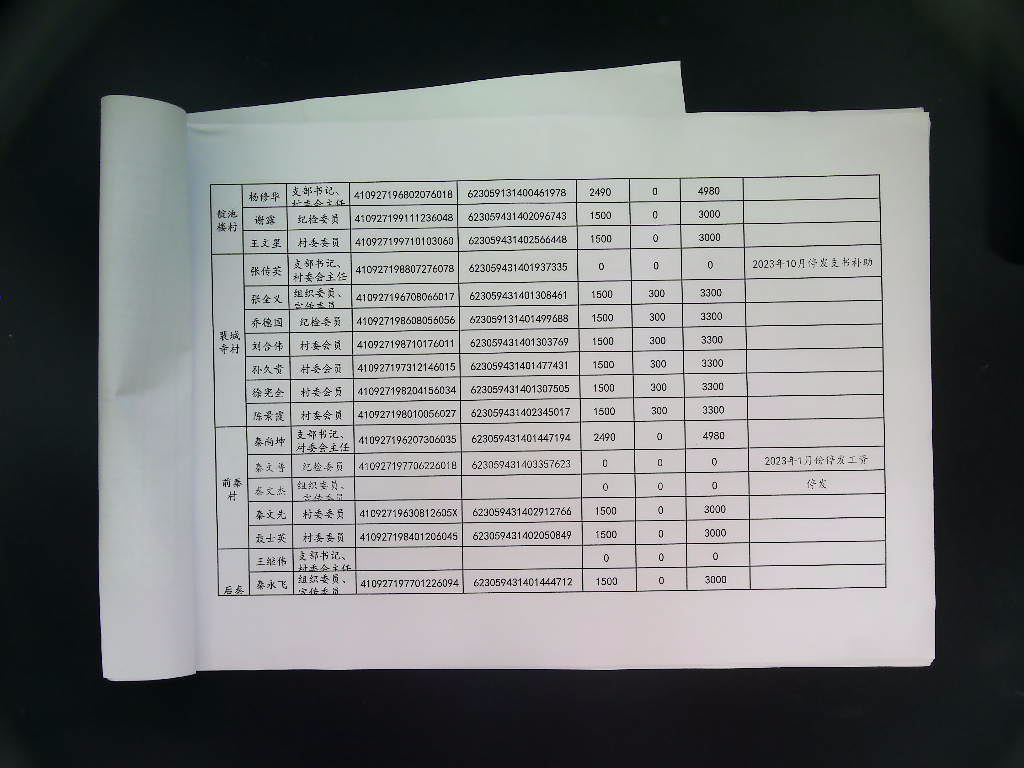 靛池楼村
杨修华 支部书记、村委会主任 410927196802076018 623059131400461978 2490 0 4980
谢露 纪检委员 410927199111236048 623059431402096743 1500 0 3000
王文星 村委委员 410927199710103060 623059431402566448 1500 0 3000
裴城寺村
张传英 支部书记、村委会主任 410927198807276078 623059431401937335 0 0 0 2023年10月停发支书补助
张全义 组织委员、宣传委员 410927196708066017 623059431401308461 1500 300 3300
乔德国 纪检委员 410927198608056056 623059131401499688 1500 300 3300
刘合伟 村委会员 410927198710176011 623059431401303769 1500 300 3300
孙久贵 村委会员 410927197312146015 623059431401477431 1500 300 3300
徐宪全 村委会员 410927198204156034 623059431401307505 1500 300 3300
陈景霞 村委会员 410927198010056027 623059431402345017 1500 300 3300
前秦村
秦尚坤 支部书记、村委会主任 410927196207306035 623059431401447194 2490 0 4980
秦文普 纪检委员 410927197706226018 623059431403357623 0 0 0 2023年1月份停发工资
秦文杰 组织委员、宣传委员 0 0 0 停发
秦文先 村委委员 41092719630812605X 623059431402912766 1500 0 3000
聂士英 村委委员 410927198401206045 623059431402050849 1500 0 3000
后秦
王继伟 支部书记、村委会主任 0 0 0
秦永飞 组织委员、宣传委员 410927197701226094 623059431401444712 1500 0 3000